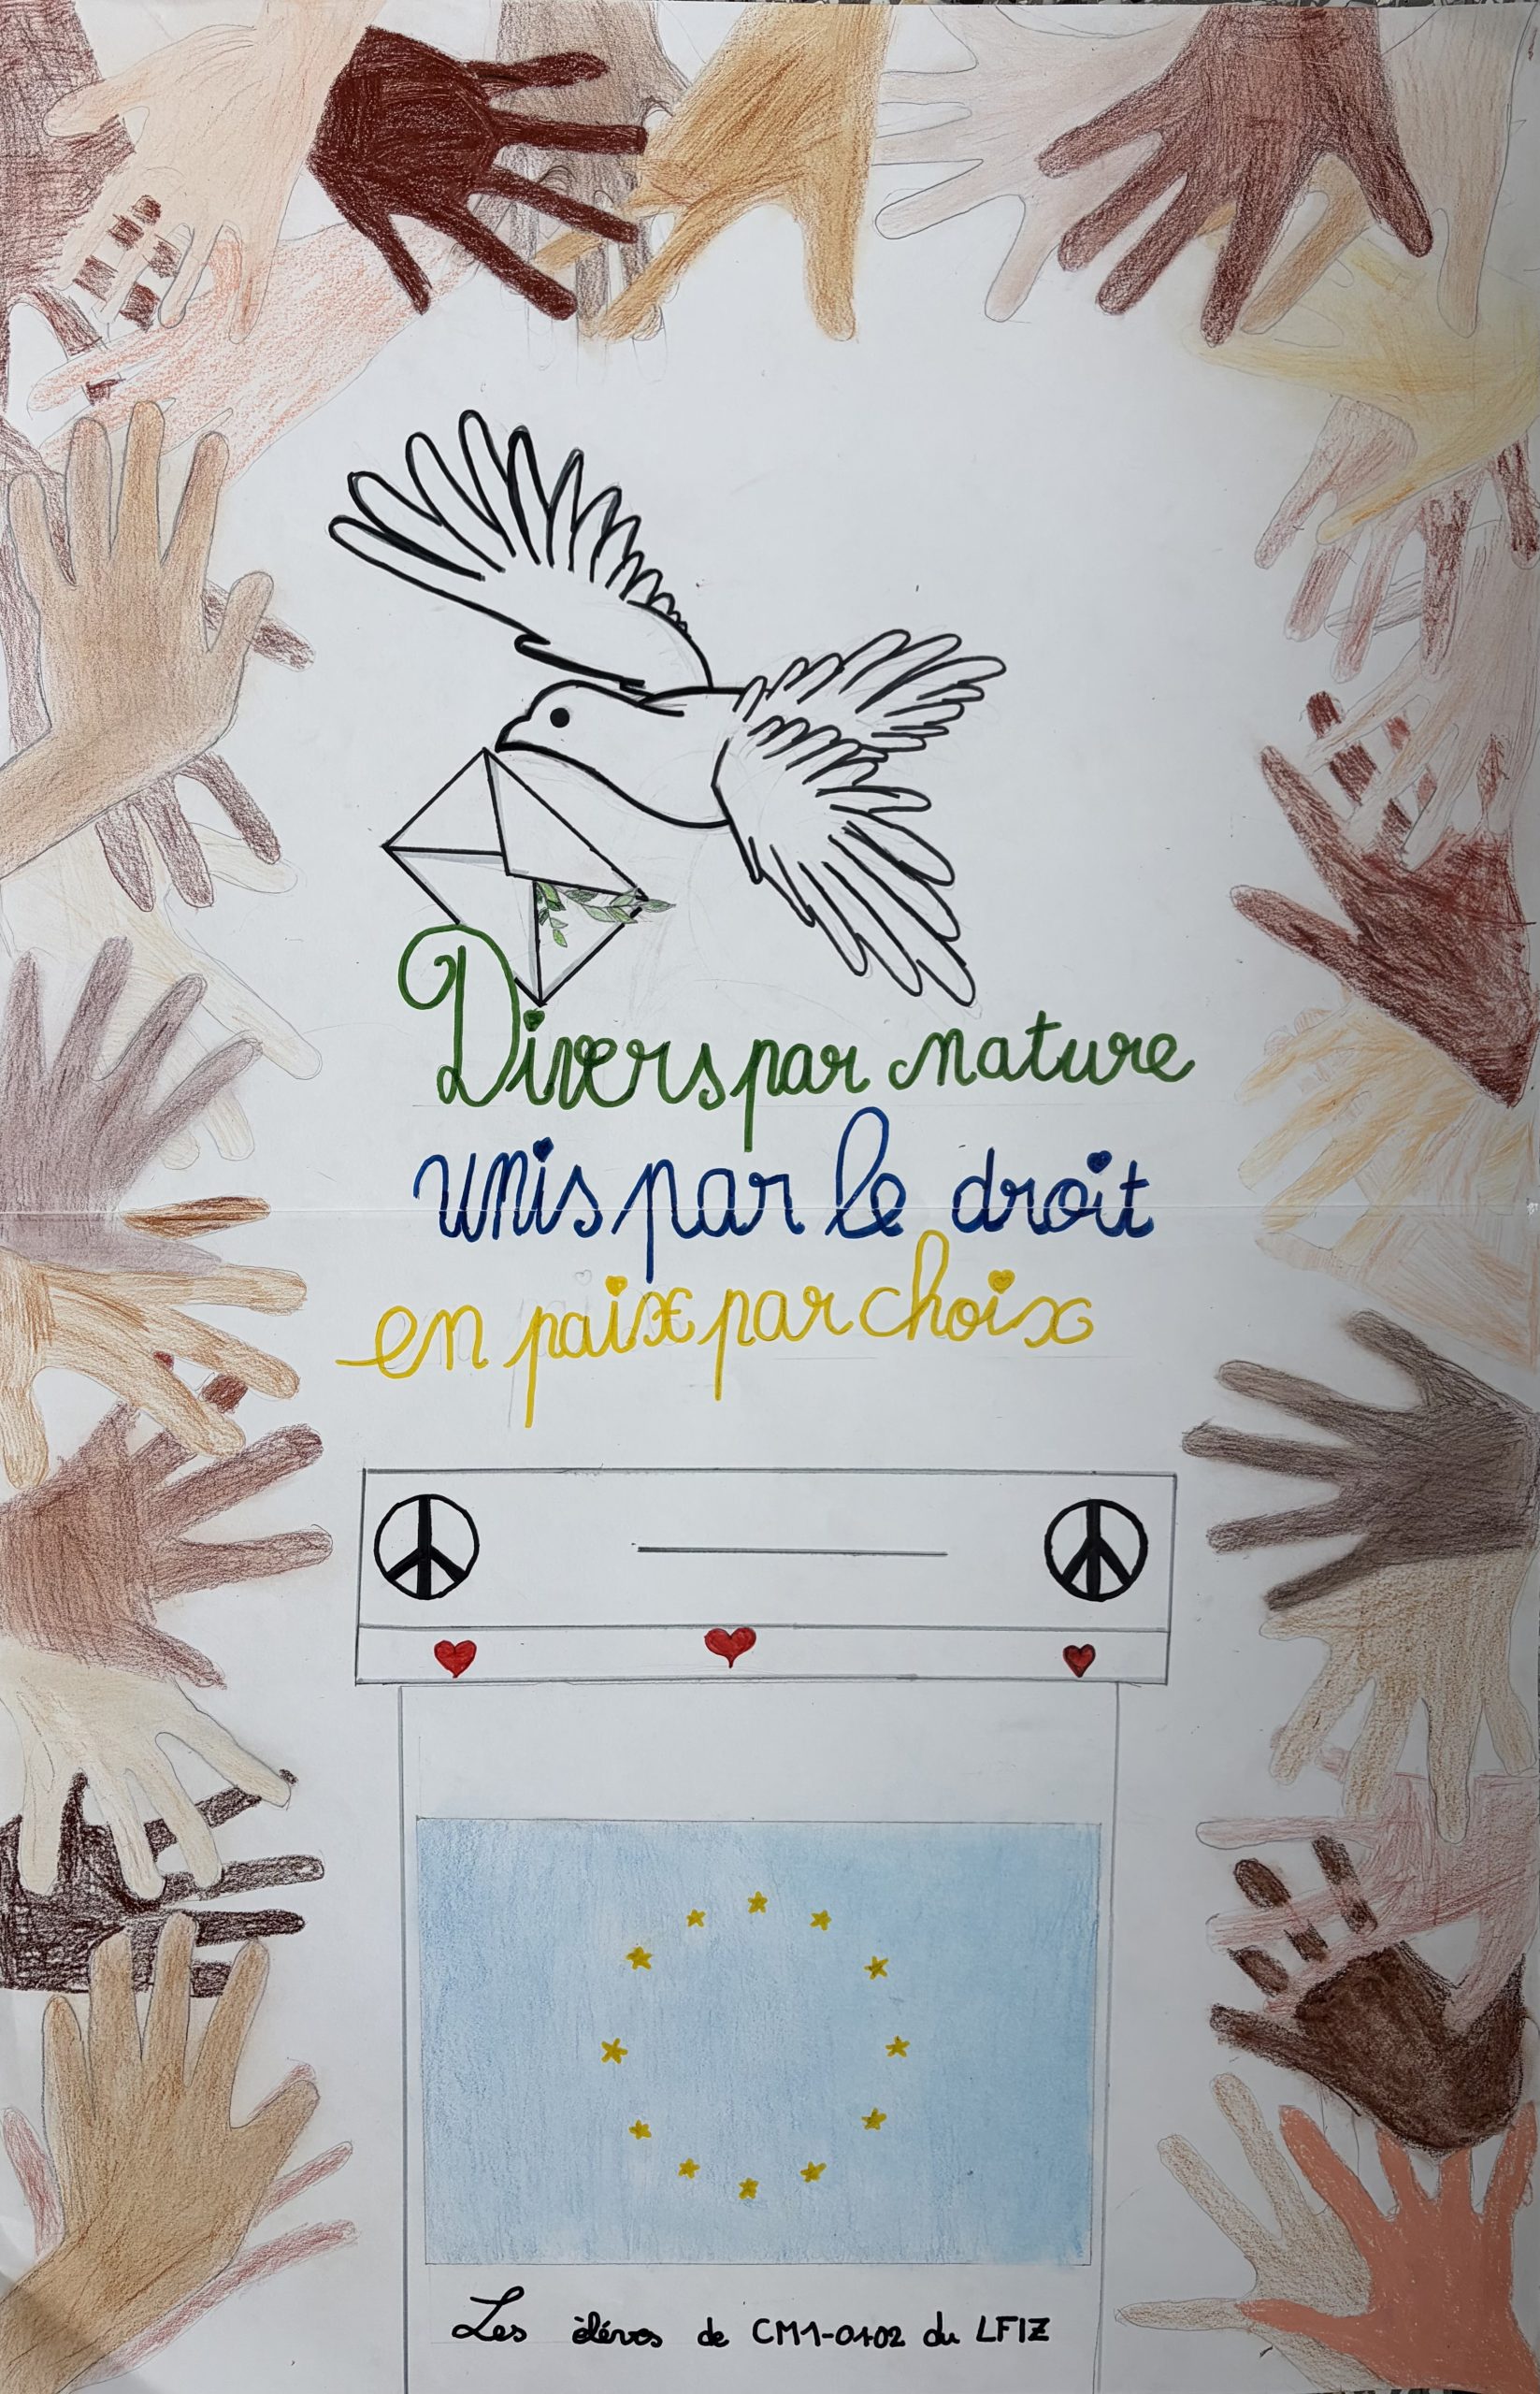 Divers par nature
unis par le droit
en paix par choix
Les élèves de CM1-0102 du LFIZ